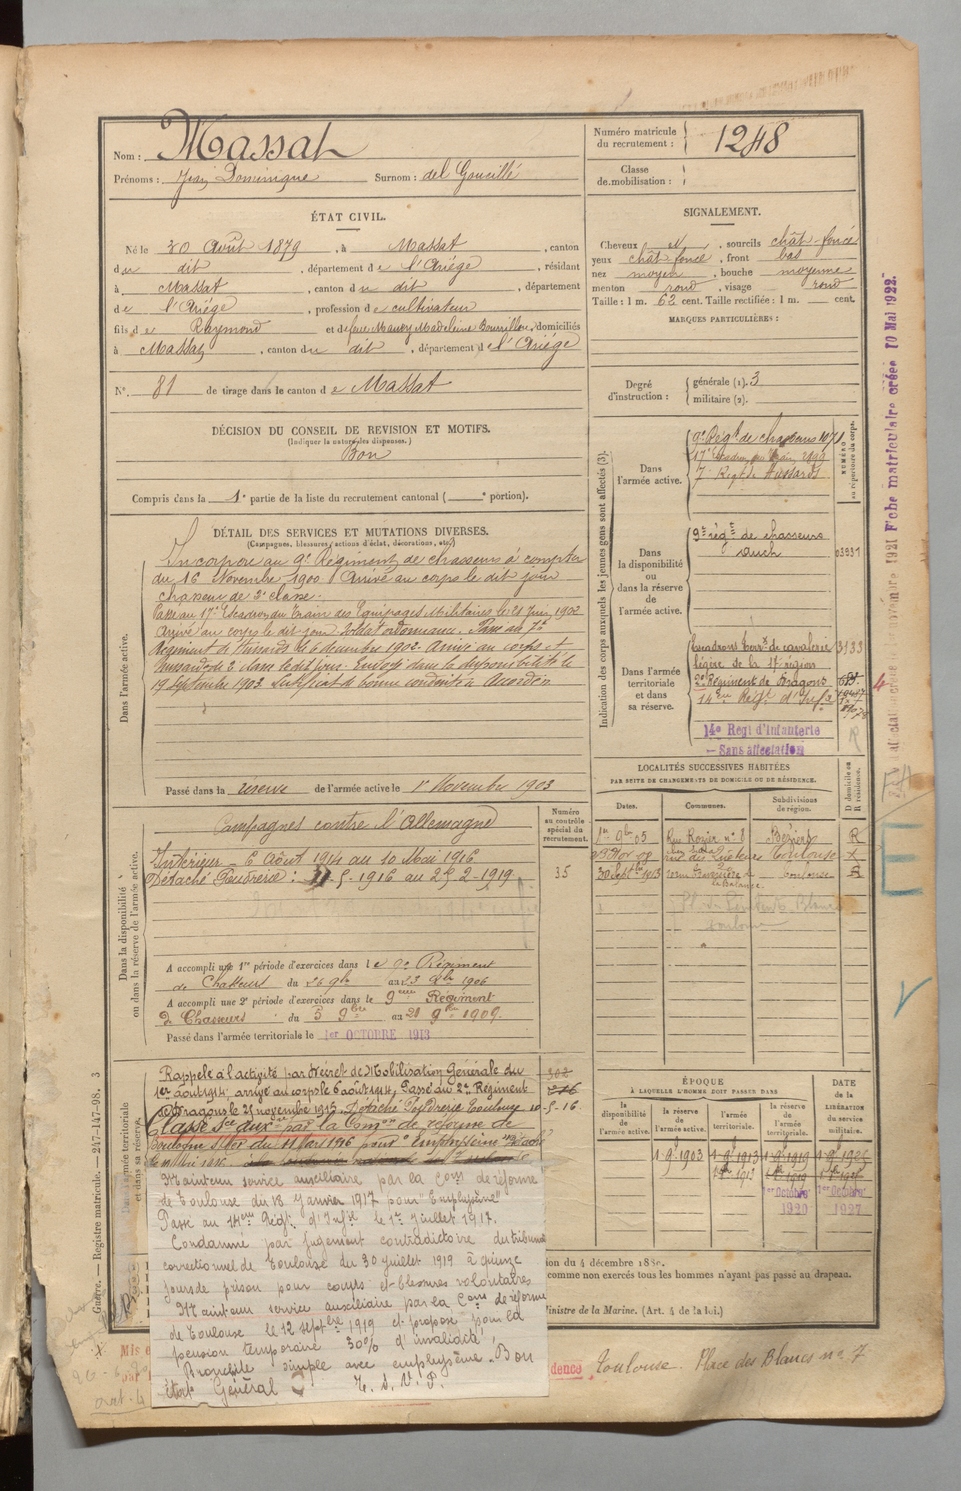 Nom : Massat
Prénoms : Jean Dominique Surnom : del Goucillé
Numéro matricule du recrutement : 1248
Classe de mobilisation :
ÉTAT CIVIL.
Né le 30 Août 1879, à Massat, canton
du dit, département de l'Ariége, résidant
à Massat, canton du dit, département
de l'Ariége, profession de cultivateur
fils de Raymond et de domiciliés
à Massat, canton du dit, département de l'Ariége
N° 81 de tirage dans le canton de Massat
DÉCISION DU CONSEIL DE REVISION ET MOTIFS.
(Indiquer la nature des dispenses.)
Bon
Compris dans la 1e partie de la liste du recrutement cantonal ( e portion).
SIGNALEMENT.
Cheveux et, sourcils chât-foncé
yeux chât foncé, front bas
nez moyen, bouche moyenne
menton rond, visage rond
Taille : 1 m. 62 cent. Taille rectifiée : 1 m. cent.
MARQUES PARTICULIÈRES :
Degré d'instruction : générale (1). 3
militaire (2).
DÉTAIL DES SERVICES ET MUTATIONS DIVERSES.
(Campagnes, blessures, actions d'éclat, décorations, etc.)
Dans l'armée active.
Incorporé au 9e Régiment de chasseurs à compter
du 16 Novembre 1900. Arrivé au corps le dit jour
chasseur de 2e classe.
Passé au 17e Escadron du Train des Equipages Militaires le 21 Juin 1902
Arrivé au corps le dit jour soldat ordonnance. Passé au 7e
Régiment de Hussards le 6 décembre 1902. Arrivé au corps et
Hussard de 2e classe le dit jour. Envoyé dans la disponibilité le
19 Septembre 1903. Certificat de bonne conduite Accordé
Passé dans la réserve de l'armée active le 1er Novembre 1903
Indication des corps auxquels les jeunes gens sont affectés (3).
NUMÉRO au répertoire du corps.
Dans l'armée active.
9e Régt de chasseurs 1071
17e Escadron du Train, 2199
7e Régt de Hussards
Dans la disponibilité ou dans la réserve de l'armée active.
9e régt de chasseurs
Auch
03931
Dans l'armée territoriale et dans sa réserve.
Escadrons terr. de cavalerie 3133
légère de la 17e région
2e Régiment de Dragons
14eme Régt d'Infie
14e Regt d'Infanterie
— Sans affectation
R
LOCALITÉS SUCCESSIVES HABITÉES
PAR SUITE DE CHANGEMENTS DE DOMICILE OU DE RÉSIDENCE.
Dates. Communes. Subdivisions de région. D domicile ou R résidence.
1er 9bre 05 Rue Rozier n° 8 Béziers R
Toulouse
30 Septbre 1913 Toulouse R
Dans la disponibilité ou dans la réserve de l'armée active.
Numéro au contrôle spécial du recrutement.
Campagnes contre l'Allemagne
Intérieur — 6 Août 1914 au 10 Mai 1916
Détaché Poudrerie : 11-5-1916 au 25-2-1919
35
A accompli une 1re période d'exercices dans le 9e Régiment
de Chasseurs du 26 9bre au 23 Xbre 1906
A accompli une 2e période d'exercices dans le 9eme Régiment
de Chasseurs du 5 9bre au 21 9bre 1909
Passé dans l'armée territoriale le 1er OCTOBRE 1913
Dans l'armée territoriale et dans sa réserve.
Rappelé à l'activité par Décret de Mobilisation Générale du
1er août 1914. arrivé au corps le 6 août 1914, Passé au 2e Régiment
de Dragons le 21 novembre 1915. Détaché Poudrerie Toulouse 10-5-16
Classé Sce auxre par la Comon de réforme de
Toulouse
Maintenu service auxiliaire par la Com de réforme
de Toulouse du 18 Janvier 1917 pour "Emphysème"
Passé au 14eme Régt d'Infie le 1er Juillet 1917.
Condamné par jugement contradictoire du tribunal
correctionnel de Toulouse du 30 juillet 1919 à quinze
jours de prison pour coups et blessures volontaires
Maintenu service auxiliaire par la Com de réforme
de Toulouse le 12 septbre 1919 et proposé pour la
pension temporaire 30% d'invalidité,
Bronchite simple avec emphysème. Bon
état Général T. S. V. P.
ÉPOQUE
À LAQUELLE L'HOMME DOIT PASSER DANS
la disponibilité de l'armée active. la réserve de l'armée active. l'armée territoriale. la réserve de l'armée territoriale. DATE DE LA LIBÉRATION DU SERVICE MILITAIRE.
1 9bre 1903 1 9bre 1913 1 9bre 1919 1 9bre 1925
1er Octobre 1920 1er Octobre 1927
comme non exercés tous les hommes n'ayant pas passé au drapeau.
Ministre de la Marine. (Art. 4 de la loi.)
Toulouse. Place des Blancs no 7
Guerre. — Registre matricule. — 247-147-98. 3
Fiche matriculaire créée 10 Mai 1922